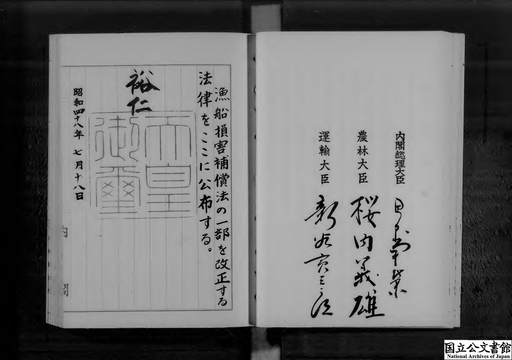 漁船損害補償法の一部を改正する
法律をここに公布する。
裕仁
天皇
御璽
昭和四十八年七月十八日
内閣
内閣総理大臣 田中角榮
農林大臣 桜内義雄
運輸大臣
国立公文書館
National Archives of Japan